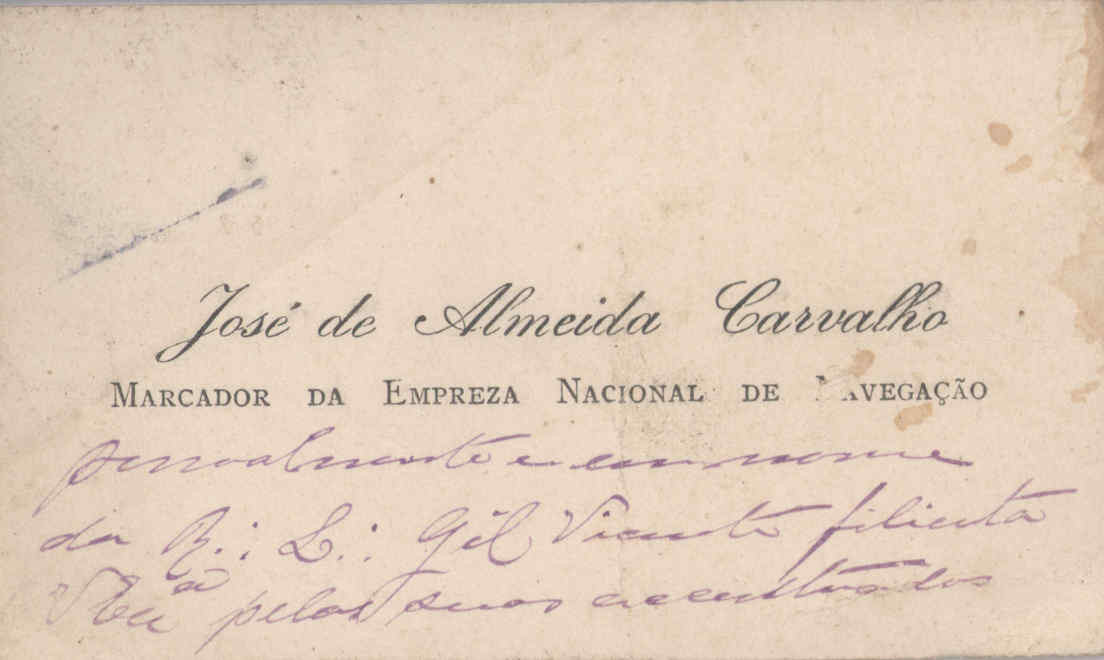 José de Almeida Carvalho
MARCADOR DA EMPREZA NACIONAL DE NAVEGAÇÃO
pessoalmente e em nome
da R∴ L∴ Gil Vicente felicita
V. Ex.ª pelos seus accentuados